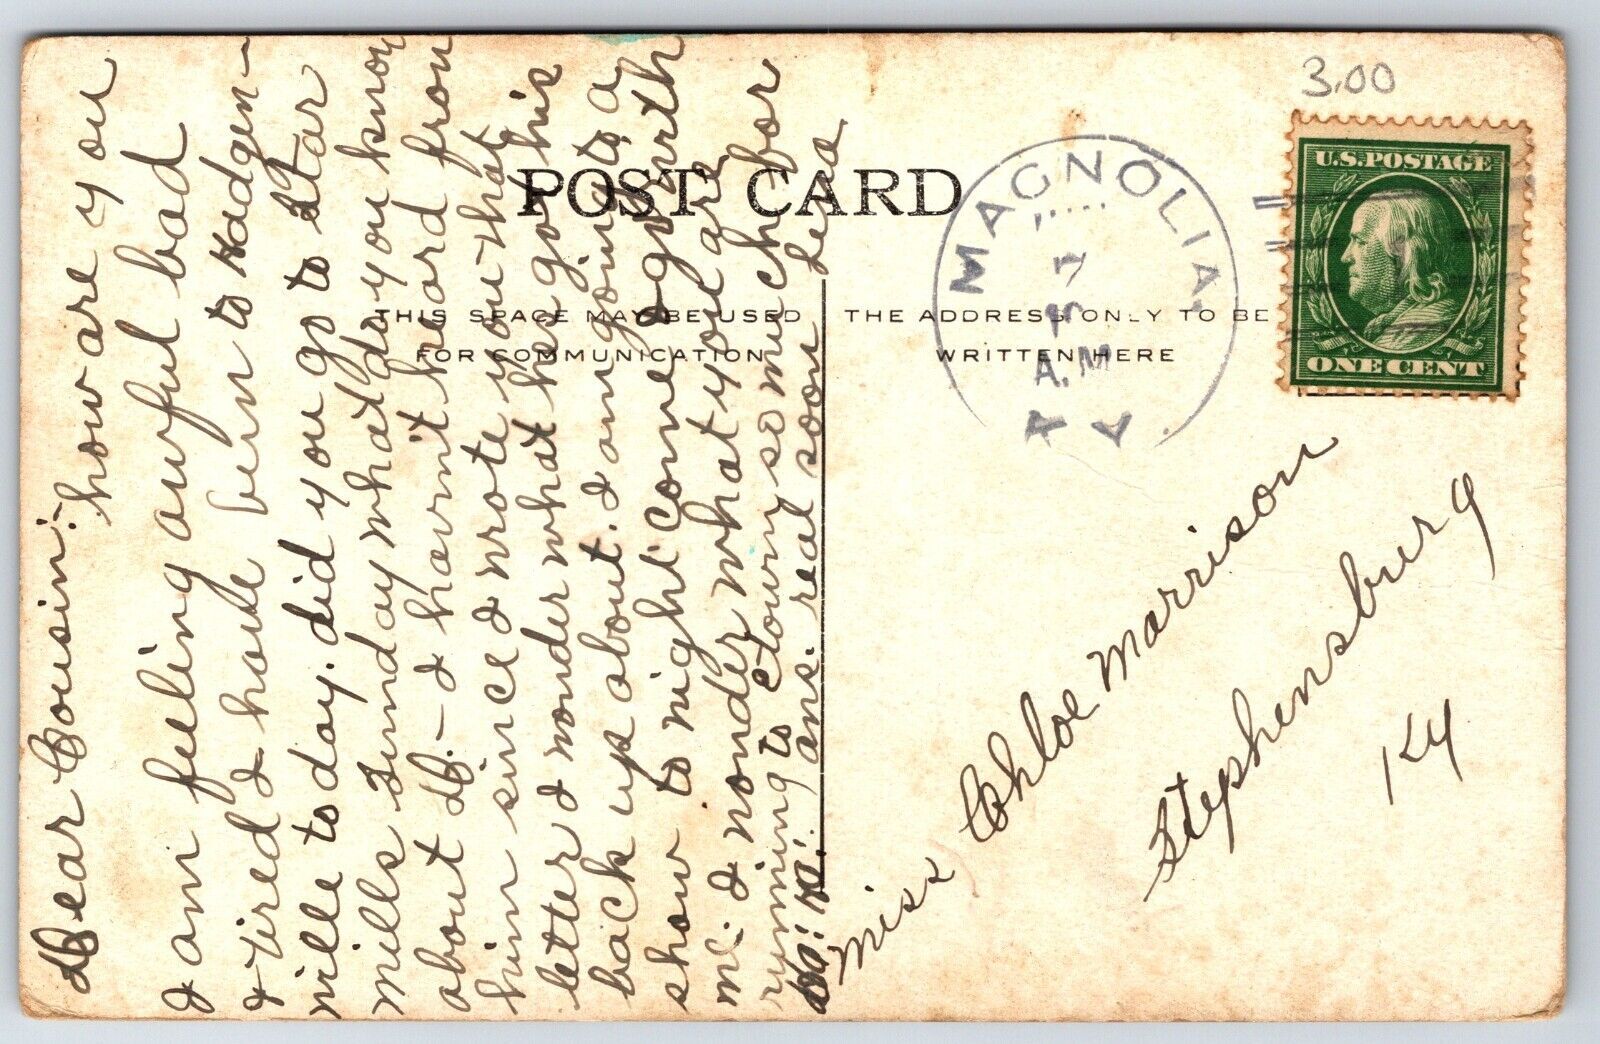 3.00
U.S. POSTAGE
ONE CENT
MAGNOLIA
7
A.M
POST CARD
THIS SPACE MAY BE USED
FOR COMMUNICATION
THE ADDRESS ONLY TO BE
WRITTEN HERE
Dear Cousin:-
how are you
I am feeling awful bad
& tired I have bein to Hodgen-
ville to day. did you go to Star
mills Sunday what do you know
about D.- I havn't heard from
him since I wrote you that
letter I wonder what hes got his
back up about. I am going to a
show to night come & go with
me. I wonder what you are
running to town so much for
Ha! Ha! ans. real soon Lena
Miss Chloe Marrison
Stephensburg
Ky